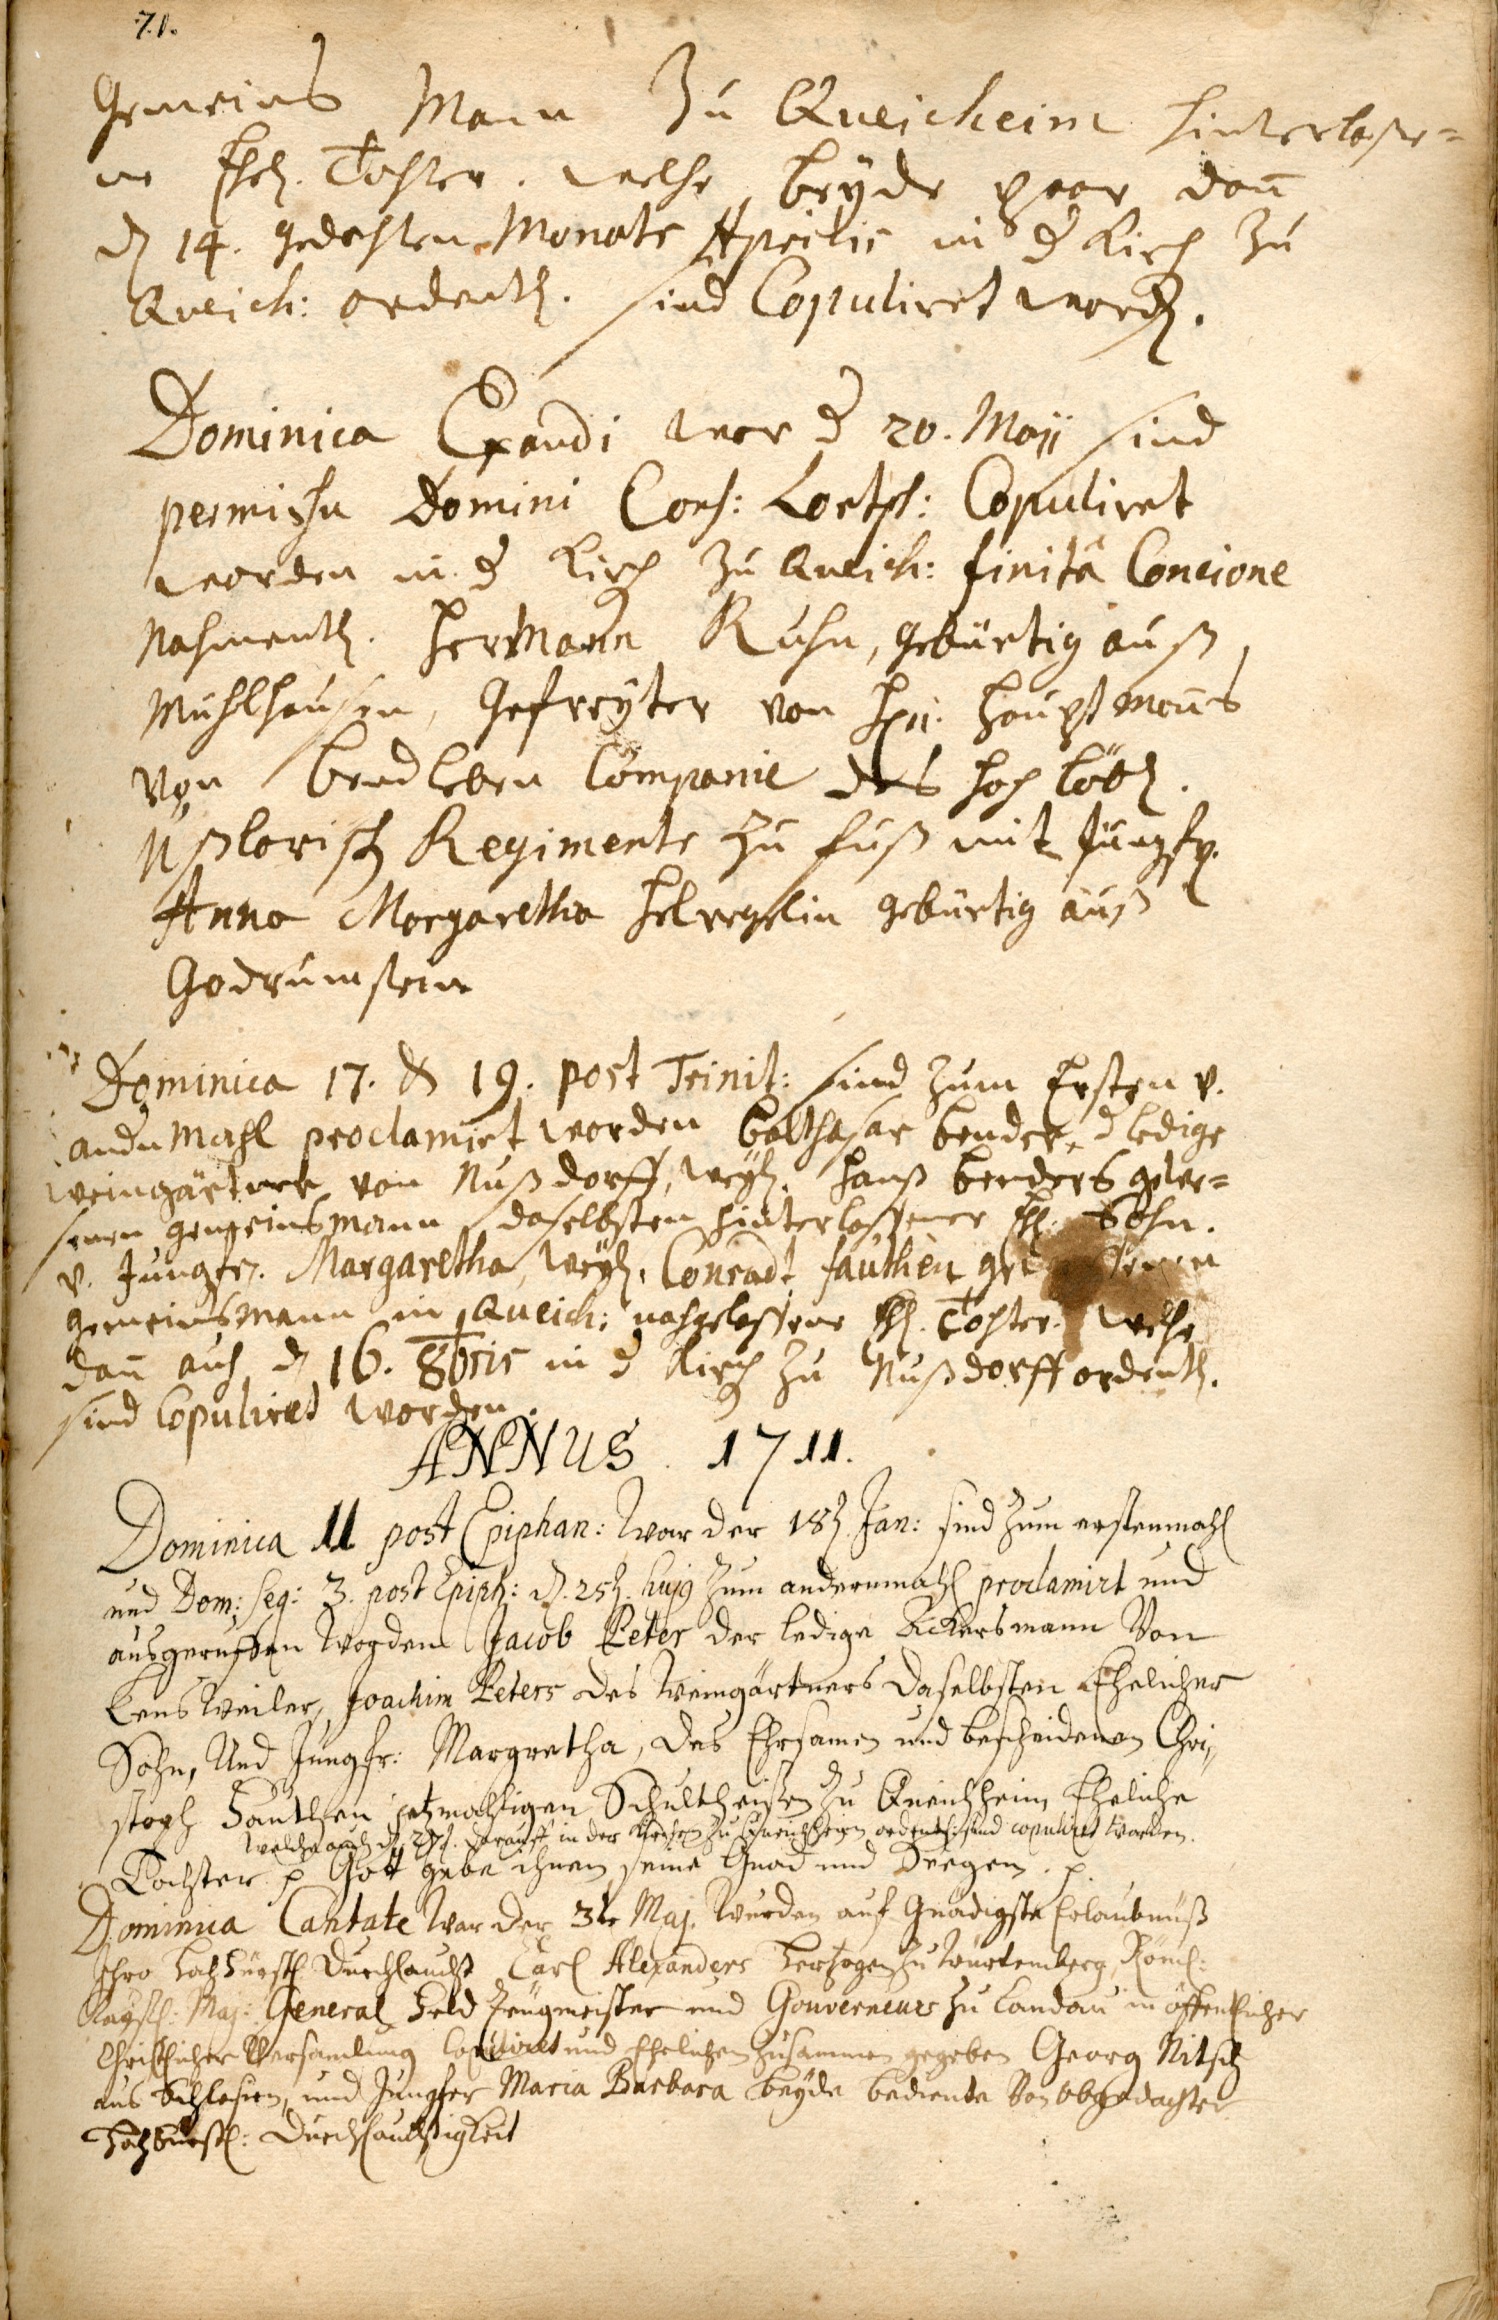 71.
Gemeins Mann zu Queicheim hinterlaße=
ne Ehel. Tochter. welche beyde paar dañ
d. 14. gedachten Monats Aprilis in d Kirch zu
Queich: ordentl. sind Copuliret word.
Dominica Exaudi war d 20. Maji sind
permissu Domini Cons: Copuliret
worden in d Kirch zu Queich: finitâ Concione
Nahmentl. Hermann Kuhn, gebürtig auß
Mühlhausen, Gefreyter von Hn. Hauptmañs
von Bendleben Companie des hochlöbl.
Ußlorisch Regiments zu fuß mit Jungfr.
Anna Margaretha gebürtig auß
Godrumstein
Dominica 17. & 19. post Trinit: sind zum Ersten v.
andn Mahl proclamirt worden Balthasar Bender, d ledige
Weingärtner von Nußdorff, weyl. Hanß Benders gewe=
senen gemeinsmann daselbsten hinterlassener Ehl. Sohn.
v. Jungfr. Margaretha, weyl. Conradt Fauthen
gemeinsmann in Queich: nachgelassene Ehl. Tochter. welche
dañ auch d. 16. 8bris in d Kirch zu Nußdorff ordentl.
sind Copuliret worden.
ANNUS 1711.
Dominica 11 post Epiphan: war der 18t. Jan: sind zum erstenmahl
und Dom: seq: 3. post Epiph: d. 25t. hujg zum andernmahl proclamirt und
ausgeruffen worden Jacob Peter der ledige Ackersmann Von
Ensweiler, Joachim Peters des Weingärtners daselbsten Ehelicher
Sohn, Und Jungfr: Margretha, des Ehrsamen und bescheidenen Chri,
stoph Fauthen jetzmahligen Schultheißen zu Queichheim Eheliche
welche auch d. 27t. darauff in der Kirchen zu Queichheim ordentl. sind copuliret worden.
Tochter p Gott gebe ihnen seine Gnad und Seegen. p.
Dominica Cantate war der 3te Maj. Wurden auf Gnädigste Erlaubnüß
Ihro Hochfürstl. Durchlaucht Carl Alexanders Hertzogen zu Würtemberg, Röml:
Kaysl: Maj: General Feld Zeugmeister und Gouverneurs zu Landau in öffentlicher
Christlicher Versamlung Copuliret und Ehelichen zusammen gegeben Georg Nitsch
aus Schlesien, und Jungfer Maria Barbara beyde bediente Von obgedachter
Hochfürstl: Durchlauchtigkeit